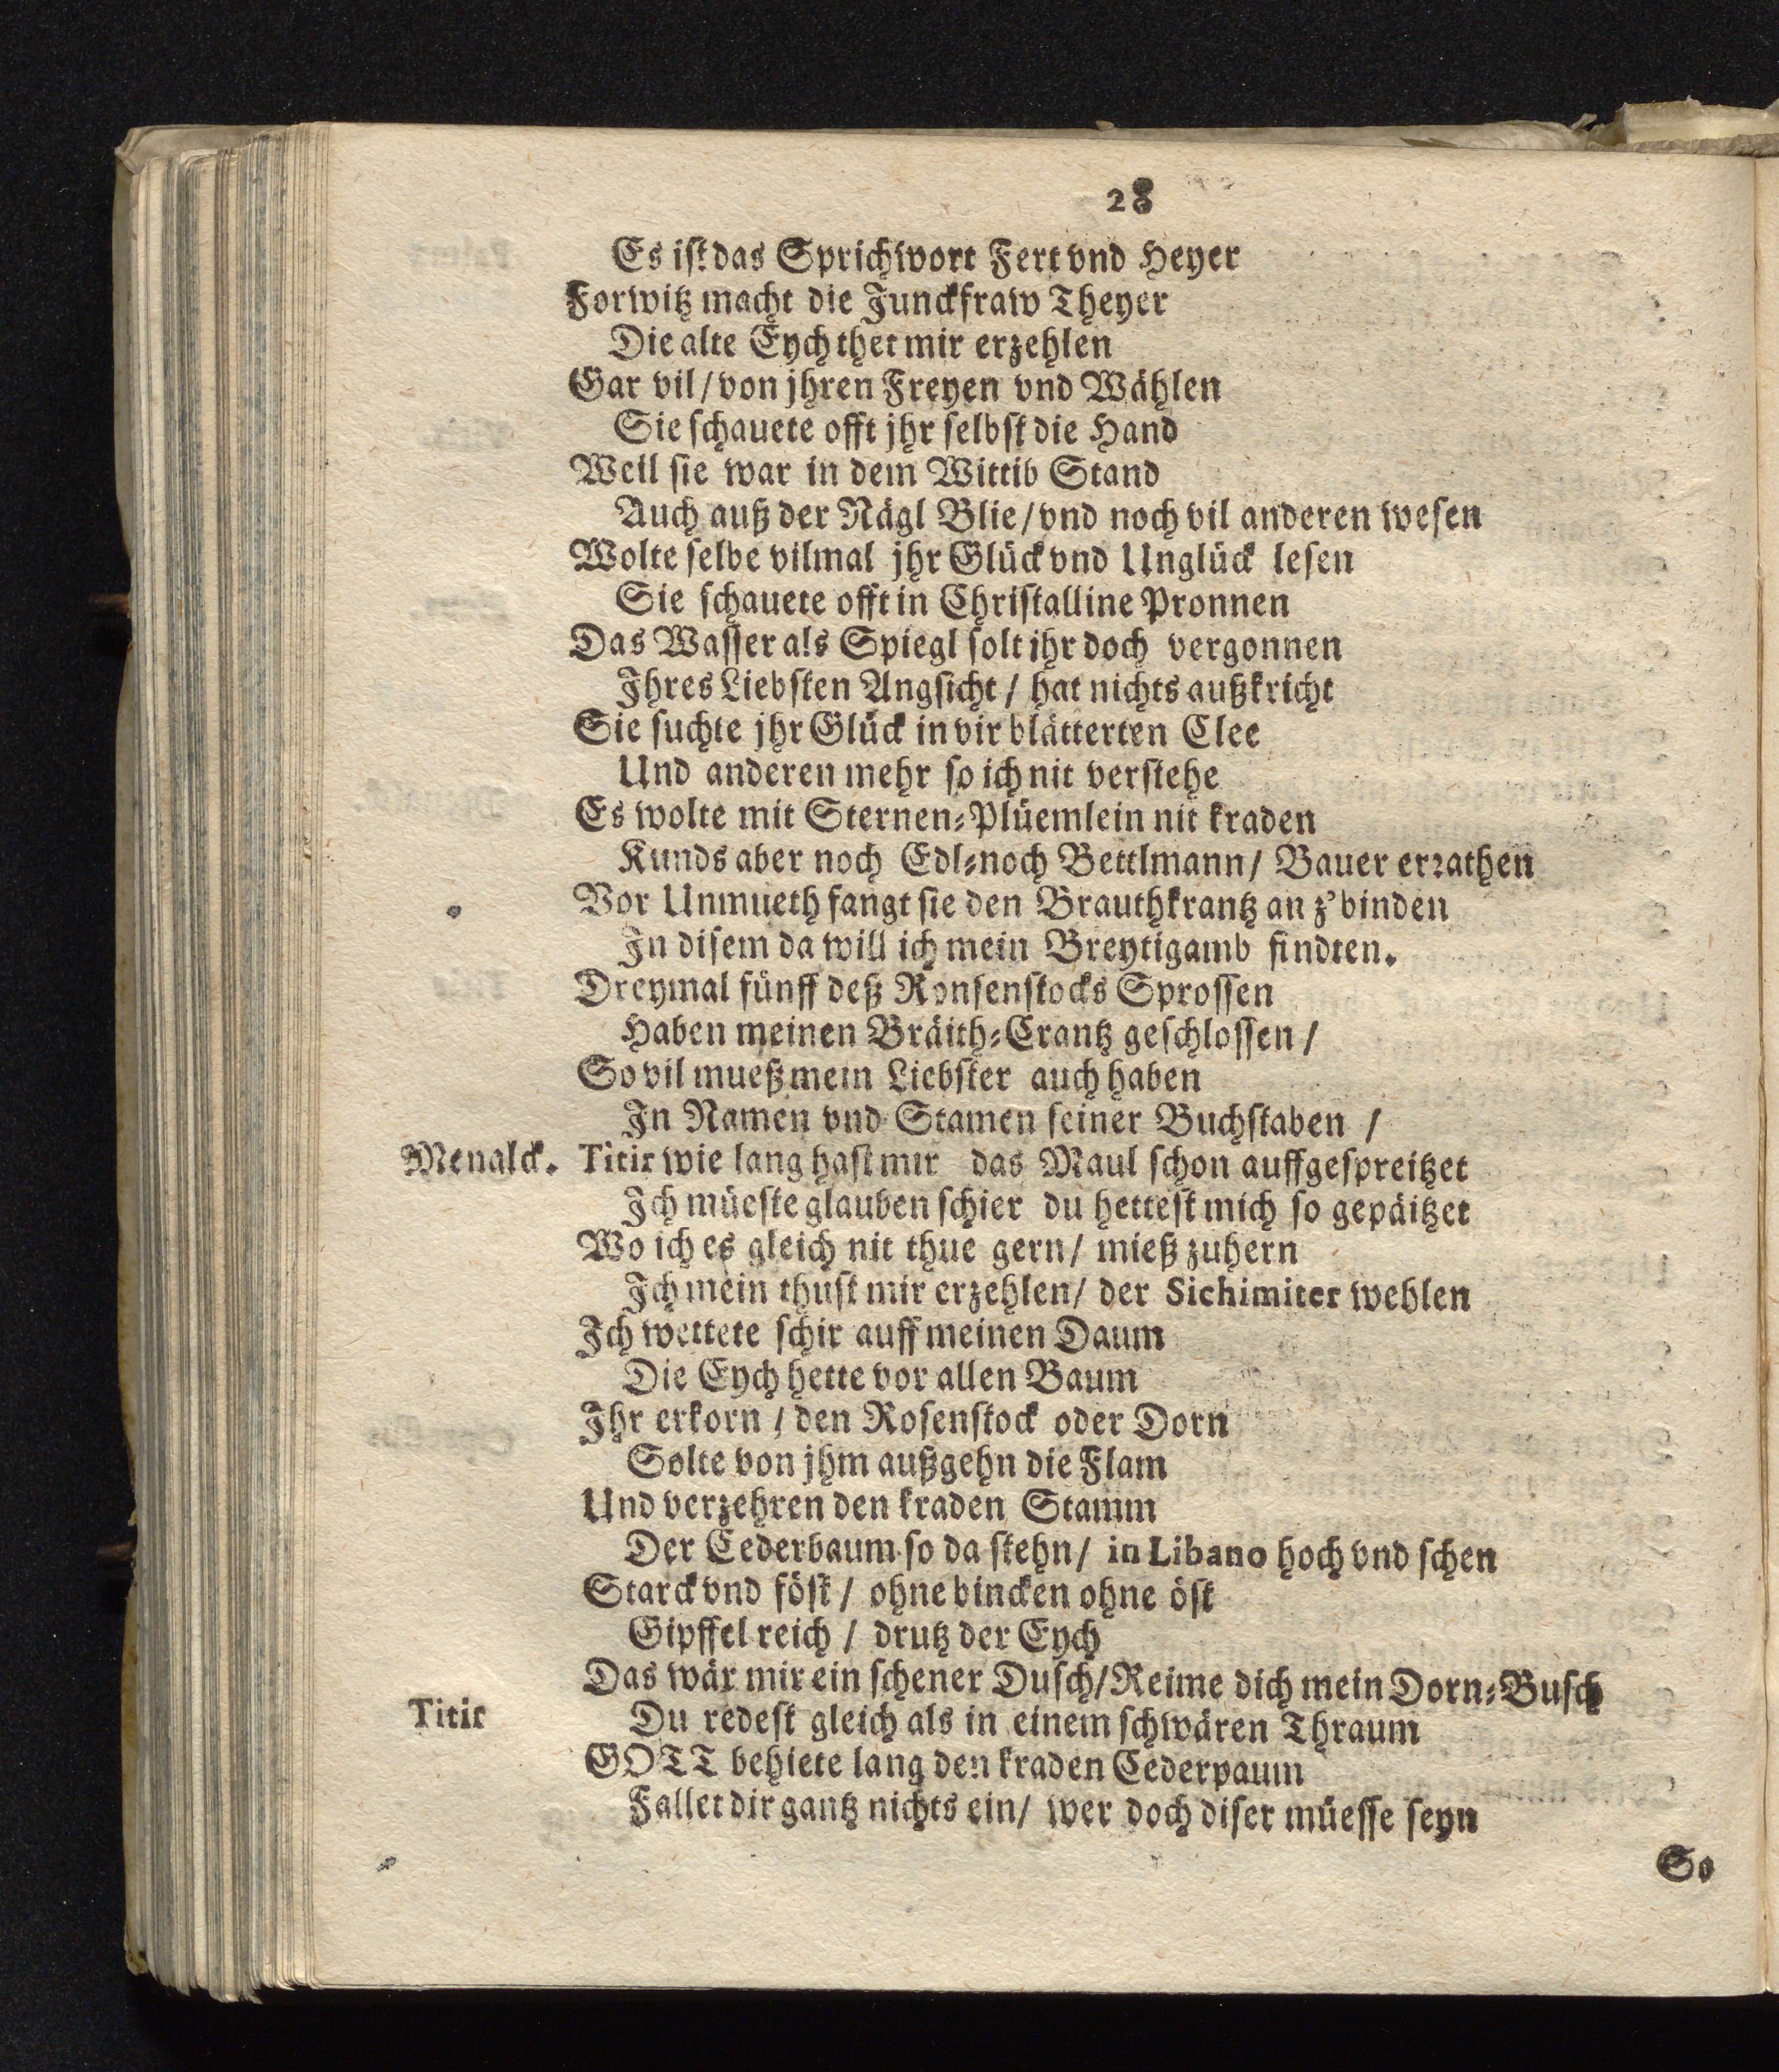 28
Es ist das Sprichwort Fert vnd Heyer
Forwitz macht die Junckfraw Theyer
Die alte Eych thet mir erzehlen
Gar vil / von jhren Freyen vnd Wählen
Sie schauete offt jhr selbst die Hand
Weil sie war in dem Wittib Stand
Auch auß der Nägl Blie / vnd noch vil anderen wesen
Wolte selbe vilmal jhr Glück vnd Unglück lesen
Sie schauete offt in Christalline Pronnen
Das Wasser als Spiegl solt ihr doch vergonnen
Ihres Liebsten Angsicht / hat nichts außkricht
Sie suchte jhr Glück in vir blätterten Clee
Und anderen mehr so ich nit verstehe
Es wolte mit Sternen-Plüemlein nit kraden
Kunds aber noch Edl-noch Bettlmann / Bauer errathen
Vor Unmueth fangt sie den Brauthkrantz an z'binden
In disem da will ich mein Breytigamb findten.
Dreymal fünff deß Ronsenstocks Sprossen
Haben meinen Bräith-Crantz geschlossen /
So vil mueß mein Liebster auch haben
In Namen vnd Stamen seiner Buchstaben /
Menalck. Titir wie lang hast mir das Maul schon auffgespreitzet
Ich müeste glauben schier du hettest mich so gepäitzet
Wo ich es gleich nit thue gern / mieß zuhern
Ich mein thust mir erzehlen / der Sichimiter wehlen
Ich wettete schir auff meinen Daum
Die Eych hette vor allen Baum
Ihr erkorn / den Rosenstock oder Dorn
Solte von jhm außgehn die Flam
Und verzehren den kraden Stamm
Der Cederbaum so da stehn / in Libano hoch vnd schen
Starck vnd föst / ohne bincken ohne öst
Gipffel reich / drutz der Eych
Das wär mir ein schener Dusch / Reime dich mein Dorn-Busch
Titir Du redest gleich als in einem schwären Thraum
GOTT behiete lang den kraden Cederpaum
Fallet dir gantz nichts ein / wer doch diser müesse seyn
So